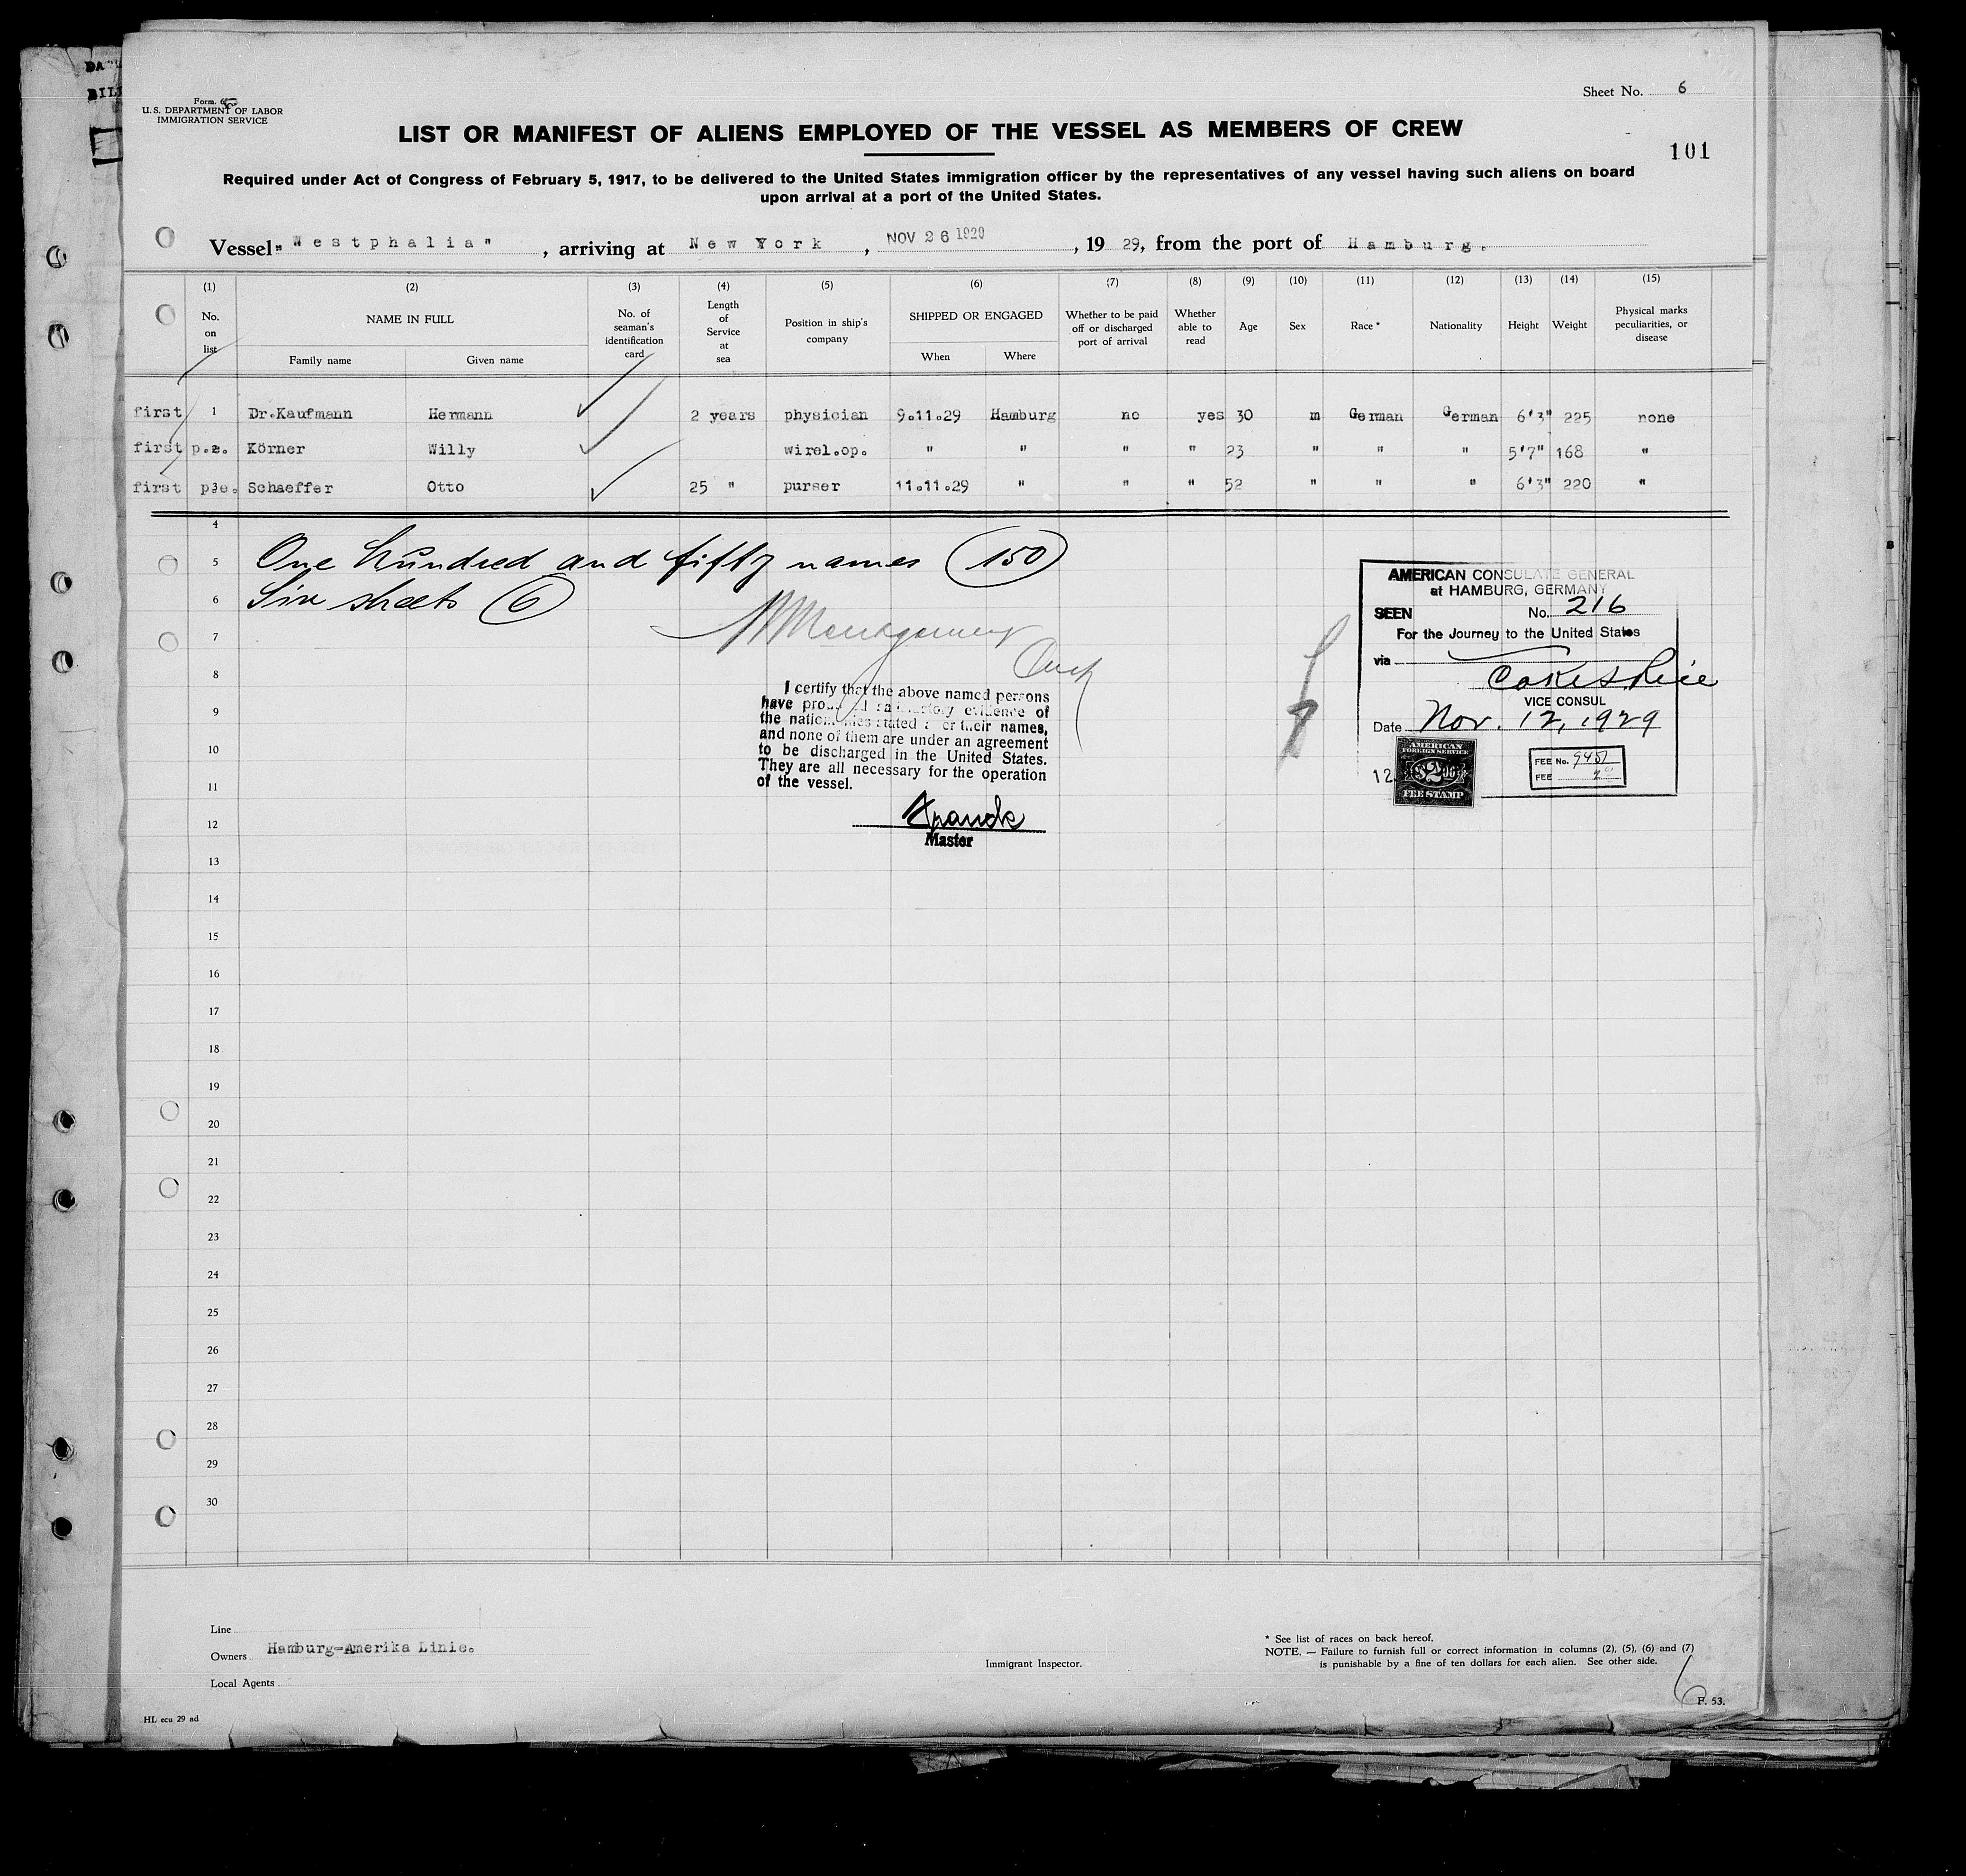 Sheet No. 6
Form 6
U.S. DEPARTMENT OF LABOR
IMMIGRATION SERVICE
LIST OR MANIFEST OF ALIENS EMPLOYED OF THE VESSEL AS MEMBERS OF CREW
101
Required under Act of Congress of February 5, 1917, to be delivered to the United States immigration officer by the representatives of any vessel having such aliens on board
upon arrival at a port of the United States.
Vessel "Westphalia", arriving at New York, NOV 26 1929, 19 29, from the port of Hamburg.
(1) (2) (3) (4) (5) (6) (7) (8) (9) (10) (11) (12) (13) (14) (15)
No. on list
NAME IN FULL
Family name Given name
No. of seaman's identification card
Length of Service at sea
Position in ship's company
SHIPPED OR ENGAGED
When Where
Whether to be paid off or discharged port of arrival
Whether able to read
Age
Sex
Race *
Nationality
Height
Weight
Physical marks peculiarities, or disease
first 1 Dr.Kaufmann Hermann 2 years physician 9.11.29 Hamburg no yes 30 m German German 6'3" 225 none
first p.e. Körner Willy wirel.op. " " " " 23 " " " 5'7" 168 "
first p.e. 3 Schaeffer Otto 25 " purser 11.11.29 " " " 52 " " " 6'3" 220 "
4
5 One hundred and fifty names (150)
6 Six sheets (6)
7
8
9
10
11
12
13
14
15
16
17
18
19
20
21
22
23
24
25
26
27
28
29
30
I certify that the above named persons
have satisfactory evidence of
the stated their names,
and none of them are under an agreement
to be discharged in the United States.
They are all necessary for the operation
of the vessel.
Master
AMERICAN CONSULATE GENERAL
at HAMBURG, GERMANY
SEEN No. 216
For the Journey to the United States
via
VICE CONSUL
Date Nov. 12, 1929
12.
AMERICAN
FOREIGN SERVICE
$2.00
FEE STAMP
FEE No. 9451
FEE
Line
Owners Hamburg-Amerika Linie.
Local Agents
Immigrant Inspector.
* See list of races on back hereof.
NOTE. — Failure to furnish full or correct information in columns (2), (5), (6) and (7)
is punishable by a fine of ten dollars for each alien. See other side.
6
F. 53.
HL ecu 29 ad